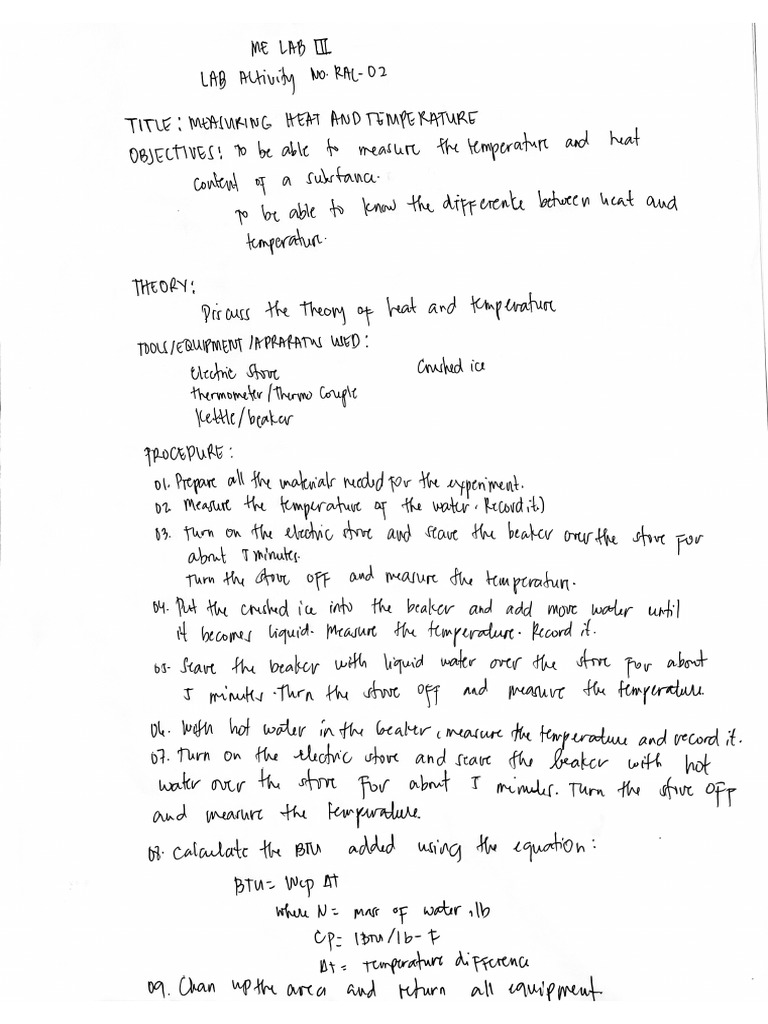 ME LAB III
LAB Activity No. RAC-02
TITLE: MEASURING HEAT AND TEMPERATURE
OBJECTIVES: To be able to measure the temperature and heat
content of a substance.
To be able to know the difference between heat and
temperature.
THEORY:
Discuss the Theory of heat and temperature
TOOLS/EQUIPMENT/APPARATUS USED:
Electric Stove Crushed ice
thermometer/Thermo Couple
Kettle/beaker
PROCEDURE:
01. Prepare all the materials needed for the experiment.
02. Measure the temperature of the water. Record it.)
03. Turn on the electric stove and leave the beaker over the stove for
about 5 minutes.
Turn the stove OFF and measure the temperature.
04. Put the crushed ice into the beaker and add more water until
it becomes liquid. Measure the temperature. Record it.
05. Leave the beaker with liquid water over the stove for about
5 minutes. Turn the stove off and measure the temperature.
06. With hot water in the beaker, measure the temperature and record it.
07. Turn on the electric stove and leave the beaker with hot
water over the stove for about 5 minutes. Turn the stove OFF
and measure the temperature.
08. Calculate the BTU added using the equation:
BTU = Wcp Δt
where N = mass of water, lb
Cp = 1 BTU/lb-F
Δt = temperature difference
09. Clean up the area and return all equipment.